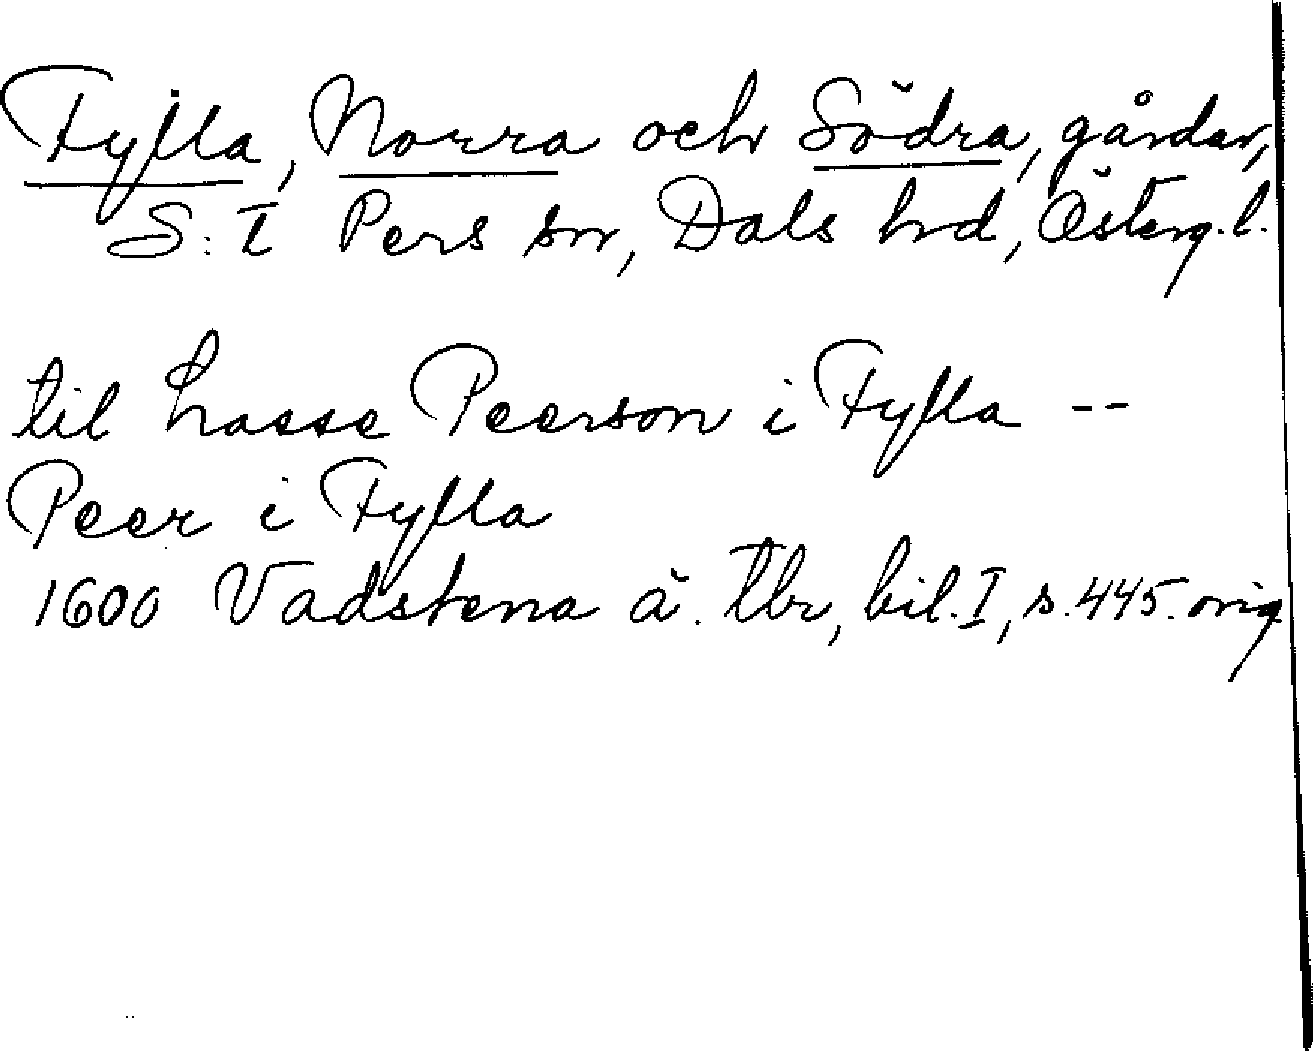 Fylla, Norra och Södra, gårdar,
S:t Pers sn, Dals hd, Österg.l.
til hasse Peerson i Fylla --
Peer i Fylla
1600 Vadstena ä. tbr, bil. I, s. 445. orig